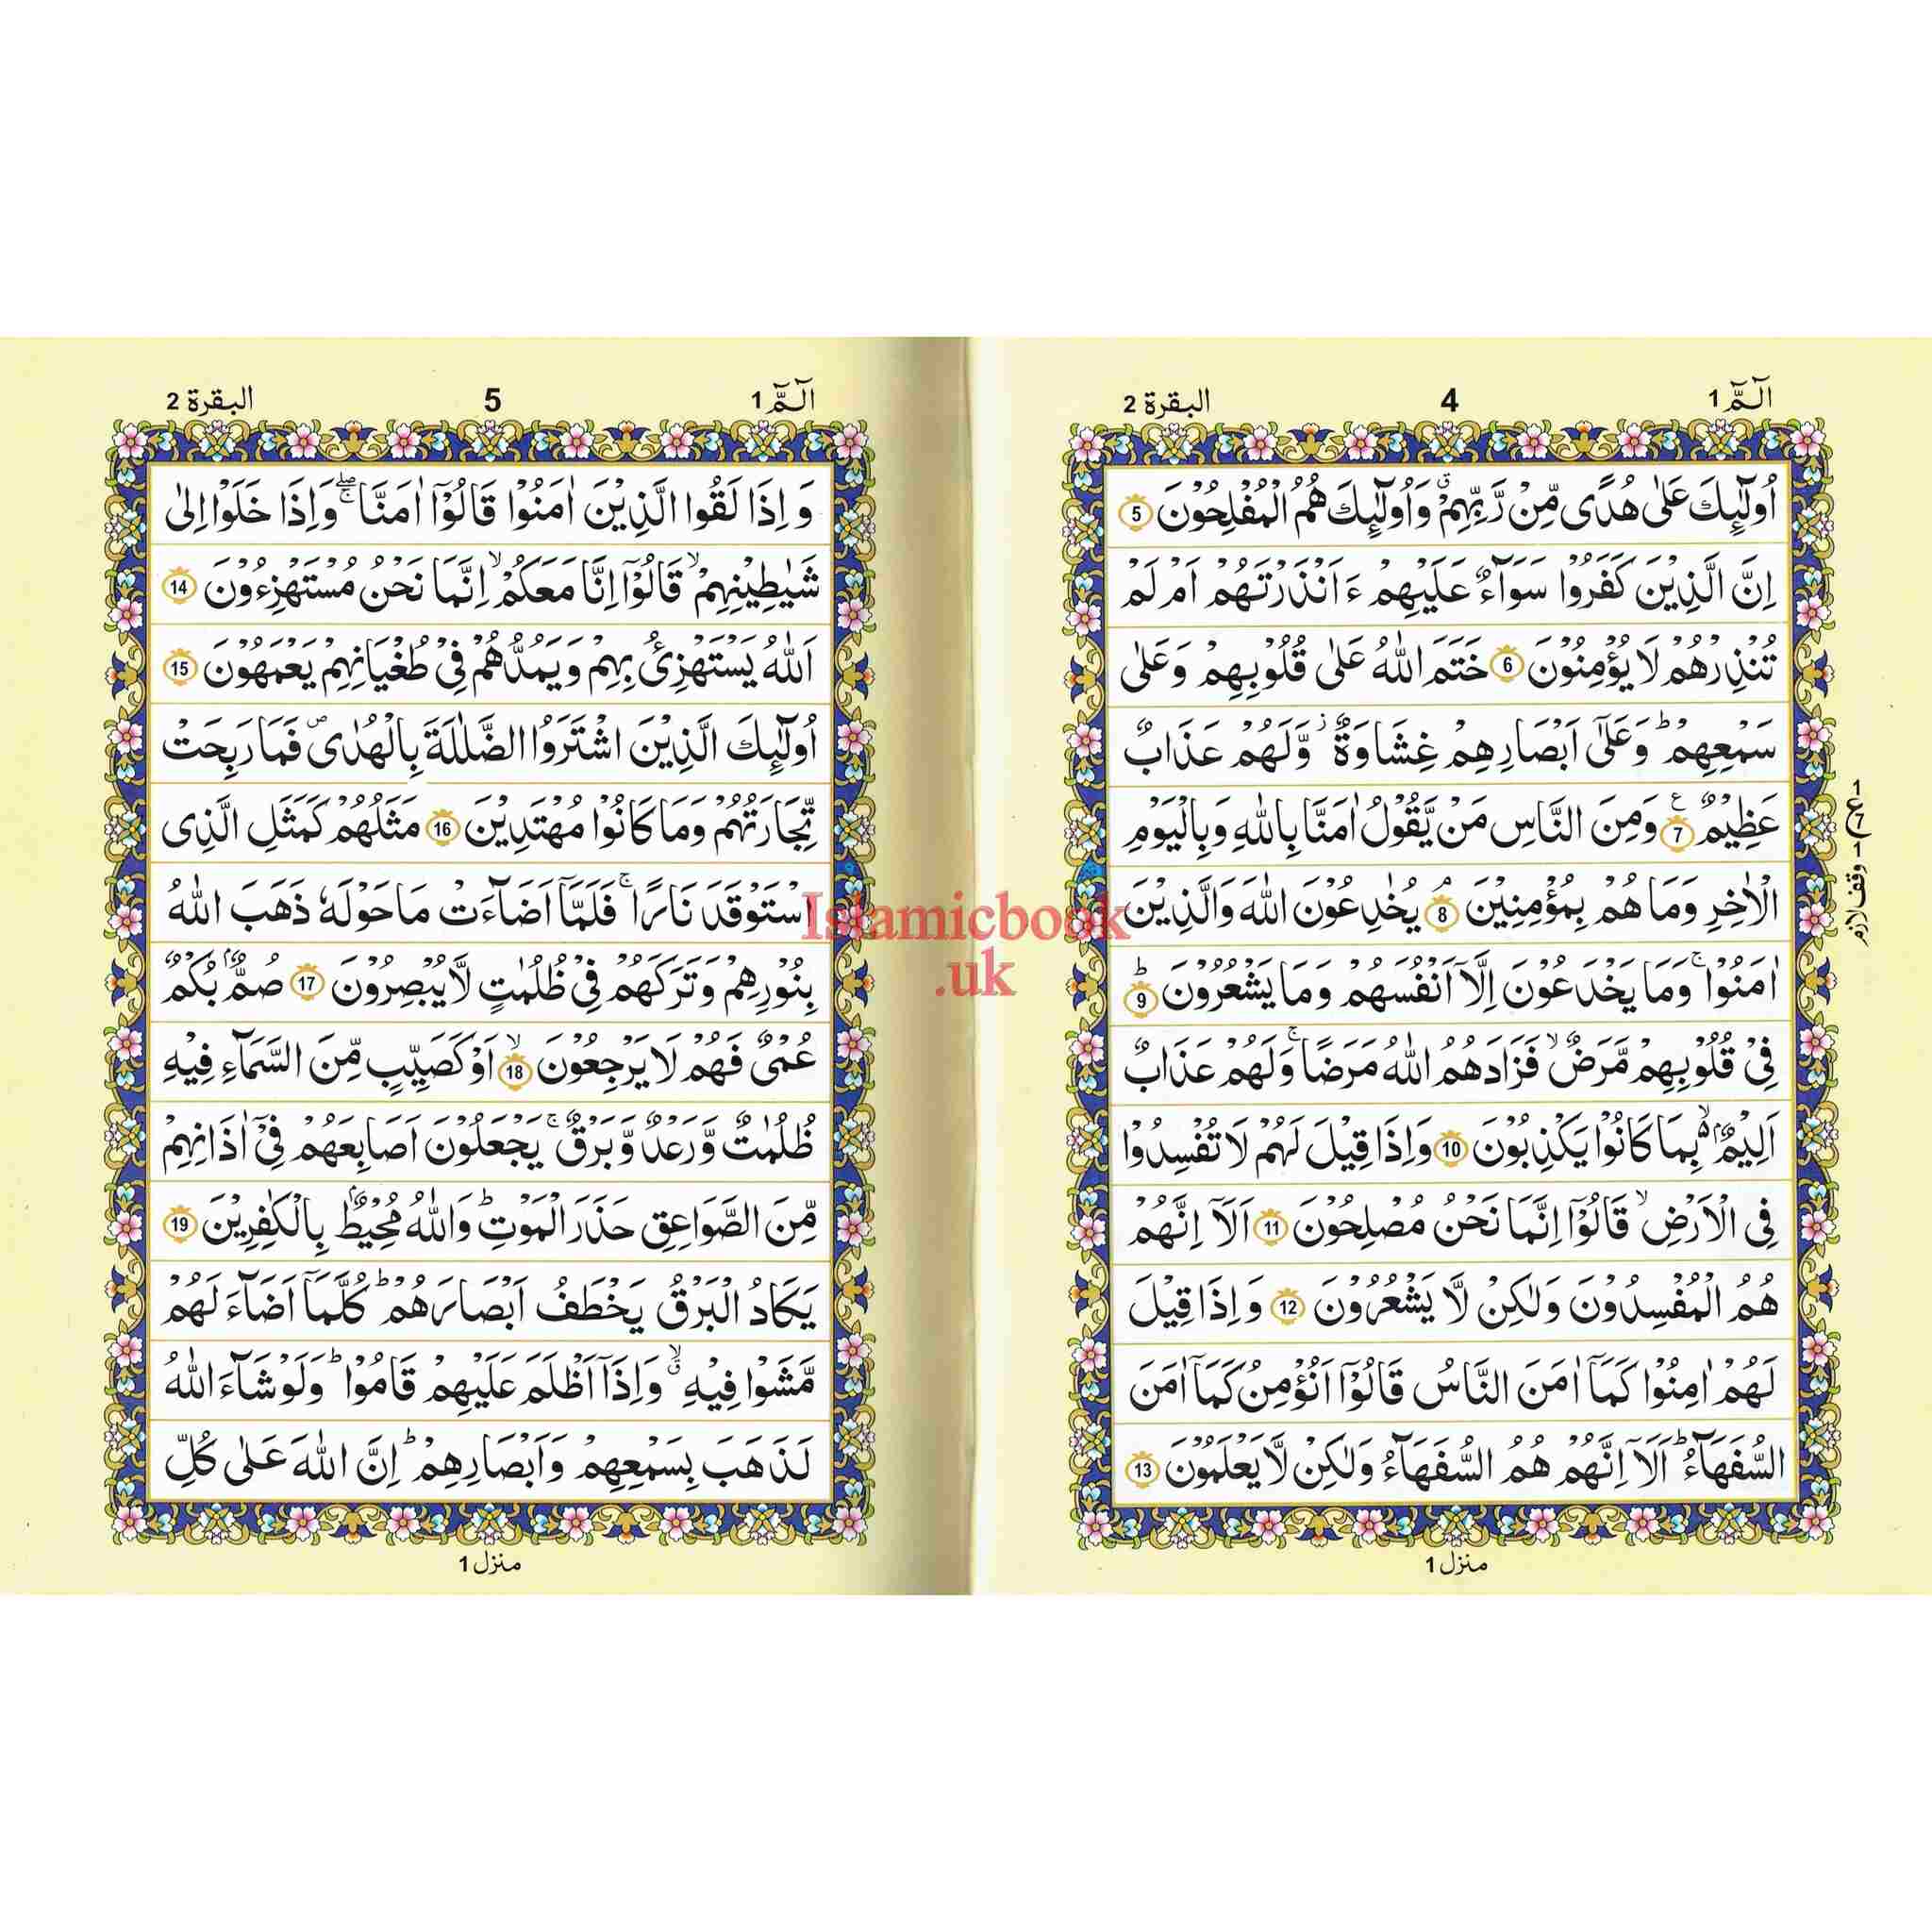 الٓـمّٓ 1
4
البقرة 2
اُولٰٓئِكَ عَلٰى هُدًى مِّنْ رَّبِّهِمْ ۗ وَاُولٰٓئِكَ هُمُ الْمُفْلِحُوْنَ 5
اِنَّ الَّذِيْنَ كَفَرُوْا سَوَآءٌ عَلَيْهِمْ ءَاَنْذَرْتَهُمْ اَمْ لَمْ
تُنْذِرْهُمْ لَا يُؤْمِنُوْنَ 6 خَتَمَ اللّٰهُ عَلٰى قُلُوْبِهِمْ وَعَلٰى
سَمْعِهِمْ ؕ وَعَلٰٓى اَبْصَارِهِمْ غِشَاوَةٌ ؗ وَّلَهُمْ عَذَابٌ
عَظِيْمٌ 7 وَمِنَ النَّاسِ مَنْ يَّقُوْلُ اٰمَنَّا بِاللّٰهِ وَبِالْيَوْمِ
الْاٰخِرِ وَمَا هُمْ بِمُؤْمِنِيْنَ ۘ 8 يُخٰدِعُوْنَ اللّٰهَ وَالَّذِيْنَ
اٰمَنُوْا ۚ وَمَا يَخْدَعُوْنَ اِلَّآ اَنْفُسَهُمْ وَمَا يَشْعُرُوْنَ ؕ 9
فِيْ قُلُوْبِهِمْ مَّرَضٌ ۙ فَزَادَهُمُ اللّٰهُ مَرَضًا ۚ وَلَهُمْ عَذَابٌ
اَلِيْمٌۢ ۙ۬ بِمَا كَانُوْا يَكْذِبُوْنَ 10 وَاِذَا قِيْلَ لَهُمْ لَا تُفْسِدُوْا
فِى الْاَرْضِ ۙ قَالُوْٓا اِنَّمَا نَحْنُ مُصْلِحُوْنَ 11 اَلَآ اِنَّهُمْ
هُمُ الْمُفْسِدُوْنَ وَلٰكِنْ لَّا يَشْعُرُوْنَ 12 وَاِذَا قِيْلَ
لَهُمْ اٰمِنُوْا كَمَآ اٰمَنَ النَّاسُ قَالُوْٓا اَنُؤْمِنُ كَمَآ اٰمَنَ
السُّفَهَآءُ ؕ اَلَآ اِنَّهُمْ هُمُ السُّفَهَآءُ وَلٰكِنْ لَّا يَعْلَمُوْنَ 13
منزل 1
ع 7
وقف لازم
الٓـمّٓ 1
5
البقرة 2
وَاِذَا لَقُوا الَّذِيْنَ اٰمَنُوْا قَالُوْٓا اٰمَنَّا ۖۚ وَاِذَا خَلَوْا اِلٰى
شَيٰطِيْنِهِمْ ۙ قَالُوْٓا اِنَّا مَعَكُمْ ۙ اِنَّمَا نَحْنُ مُسْتَهْزِءُوْنَ 14
اَللّٰهُ يَسْتَهْزِئُ بِهِمْ وَيَمُدُّهُمْ فِيْ طُغْيَانِهِمْ يَعْمَهُوْنَ 15
اُولٰٓئِكَ الَّذِيْنَ اشْتَرَوُا الضَّلٰلَةَ بِالْهُدٰى ۪ فَمَا رَبِحَتْ
تِّجَارَتُهُمْ وَمَا كَانُوْا مُهْتَدِيْنَ 16 مَثَلُهُمْ كَمَثَلِ الَّذِى
اسْتَوْقَدَ نَارًا ۚ فَلَمَّآ اَضَآءَتْ مَا حَوْلَهٗ ذَهَبَ اللّٰهُ
بِنُوْرِهِمْ وَتَرَكَهُمْ فِيْ ظُلُمٰتٍ لَّا يُبْصِرُوْنَ 17 صُمٌّۢ بُكْمٌ
عُمْيٌ فَهُمْ لَا يَرْجِعُوْنَ ۙ 18 اَوْ كَصَيِّبٍ مِّنَ السَّمَآءِ فِيْهِ
ظُلُمٰتٌ وَّرَعْدٌ وَّبَرْقٌ ۚ يَجْعَلُوْنَ اَصَابِعَهُمْ فِيْٓ اٰذَانِهِمْ
مِّنَ الصَّوَاعِقِ حَذَرَ الْمَوْتِ ؕ وَاللّٰهُ مُحِيْطٌۢ بِالْكٰفِرِيْنَ 19
يَكَادُ الْبَرْقُ يَخْطَفُ اَبْصَارَهُمْ ؕ كُلَّمَآ اَضَآءَ لَهُمْ
مَّشَوْا فِيْهِ ۙۗ وَاِذَآ اَظْلَمَ عَلَيْهِمْ قَامُوْا ؕ وَلَوْ شَآءَ اللّٰهُ
لَذَهَبَ بِسَمْعِهِمْ وَاَبْصَارِهِمْ ؕ اِنَّ اللّٰهَ عَلٰى كُلِّ
منزل 1
Islamicbook
.uk